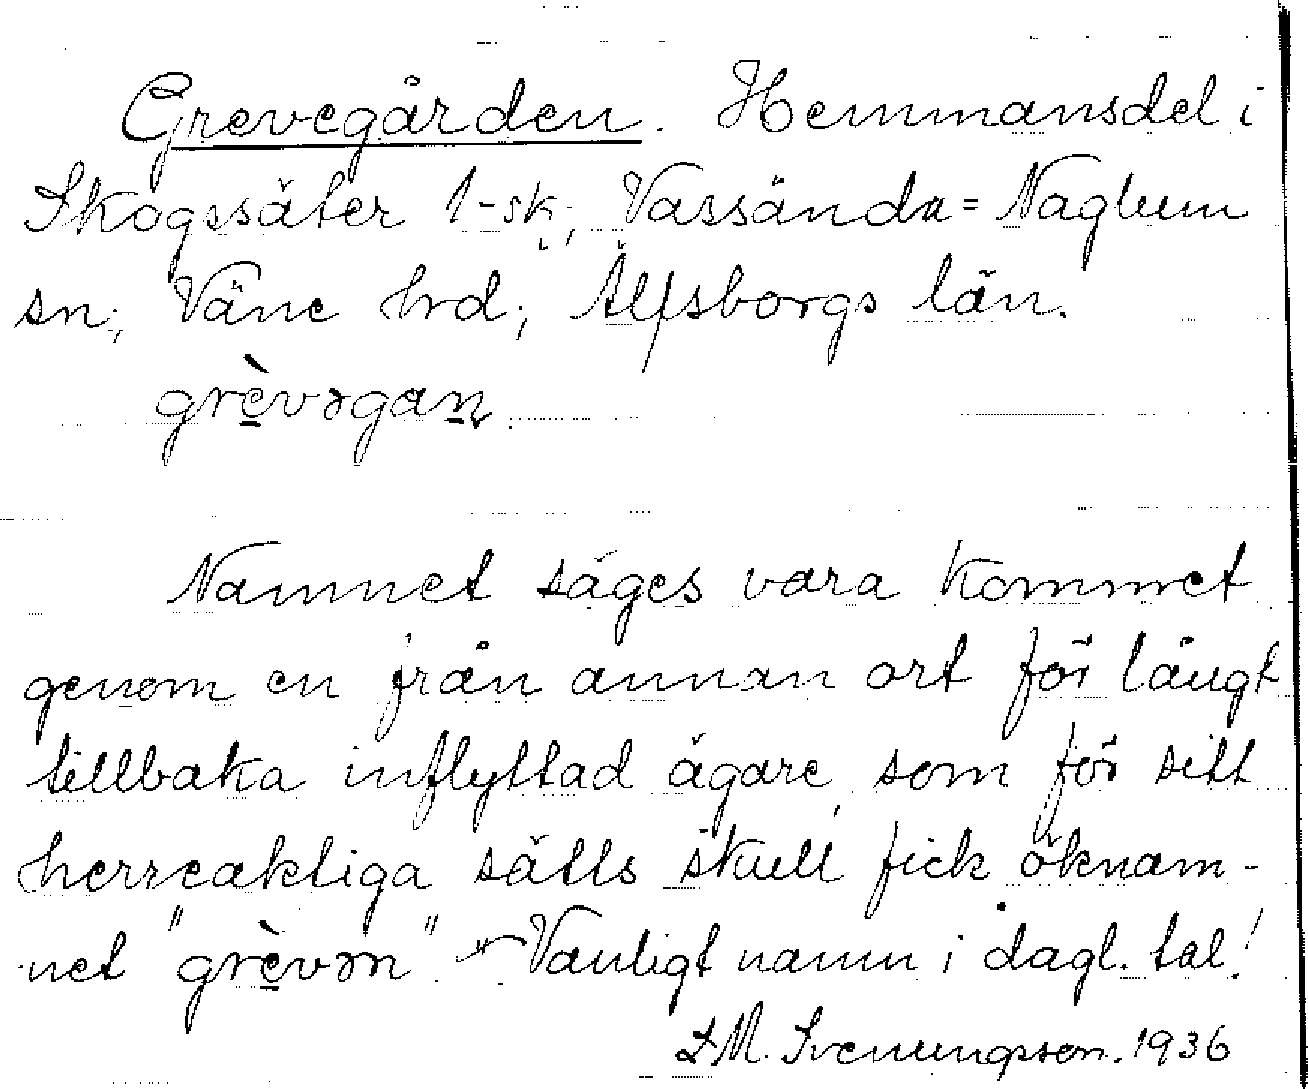 Grevegården. Hemmansdel i
Skogssäter 1-sk; Vassända=Naglum
sn; Väne hrd; Älfsborgs län.
grèvəgan
Namnet säges vara kommet
genom en från annan ort för längt
tillbaka inflyttad ägare, som för sitt
herreaktiga sätts skull fick öknam-
net "grèvən". Vanligt namn i dagl. tal!
Svenungsson. 1936